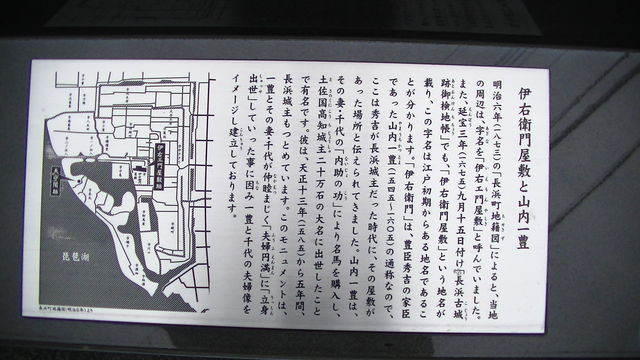 伊右衛門屋敷と山内一豊
明治六年(一八七三)の「長浜町地籍図」によると、当地
の周辺は、字名を「伊右エ門屋敷」と呼んでいました。
また、延宝三年(一六七五)九月十五日付け『長浜古城
跡御検地帳』でも、「伊右衛門屋敷」という地名が
載り、この字名は江戸初期からある地名であるこ
とが分かります。「伊右衛門」は、豊臣秀吉の家臣
であった山内一豊(一五四五〜一六〇五)の通称なので、
ここは秀吉が長浜城主だった時代に、その屋敷が
あった場所と伝えられてきました。山内一豊は、
その妻・千代の「内助の功」により名馬を購入し、
土佐国高知城主二十万石の大名に出世したこと
で有名です。彼は、天正十三年(一五八五)から五年間、
長浜城主もつとめています。このモニュメントは、
一豊とその妻・千代が仲睦まじく「夫婦円満」に「立身
出世」していった事に因み一豊と千代の夫婦像を
イメージし建立しております。
伊右衛門屋敷跡
琵琶湖
長浜町地籍図(明治6年)より